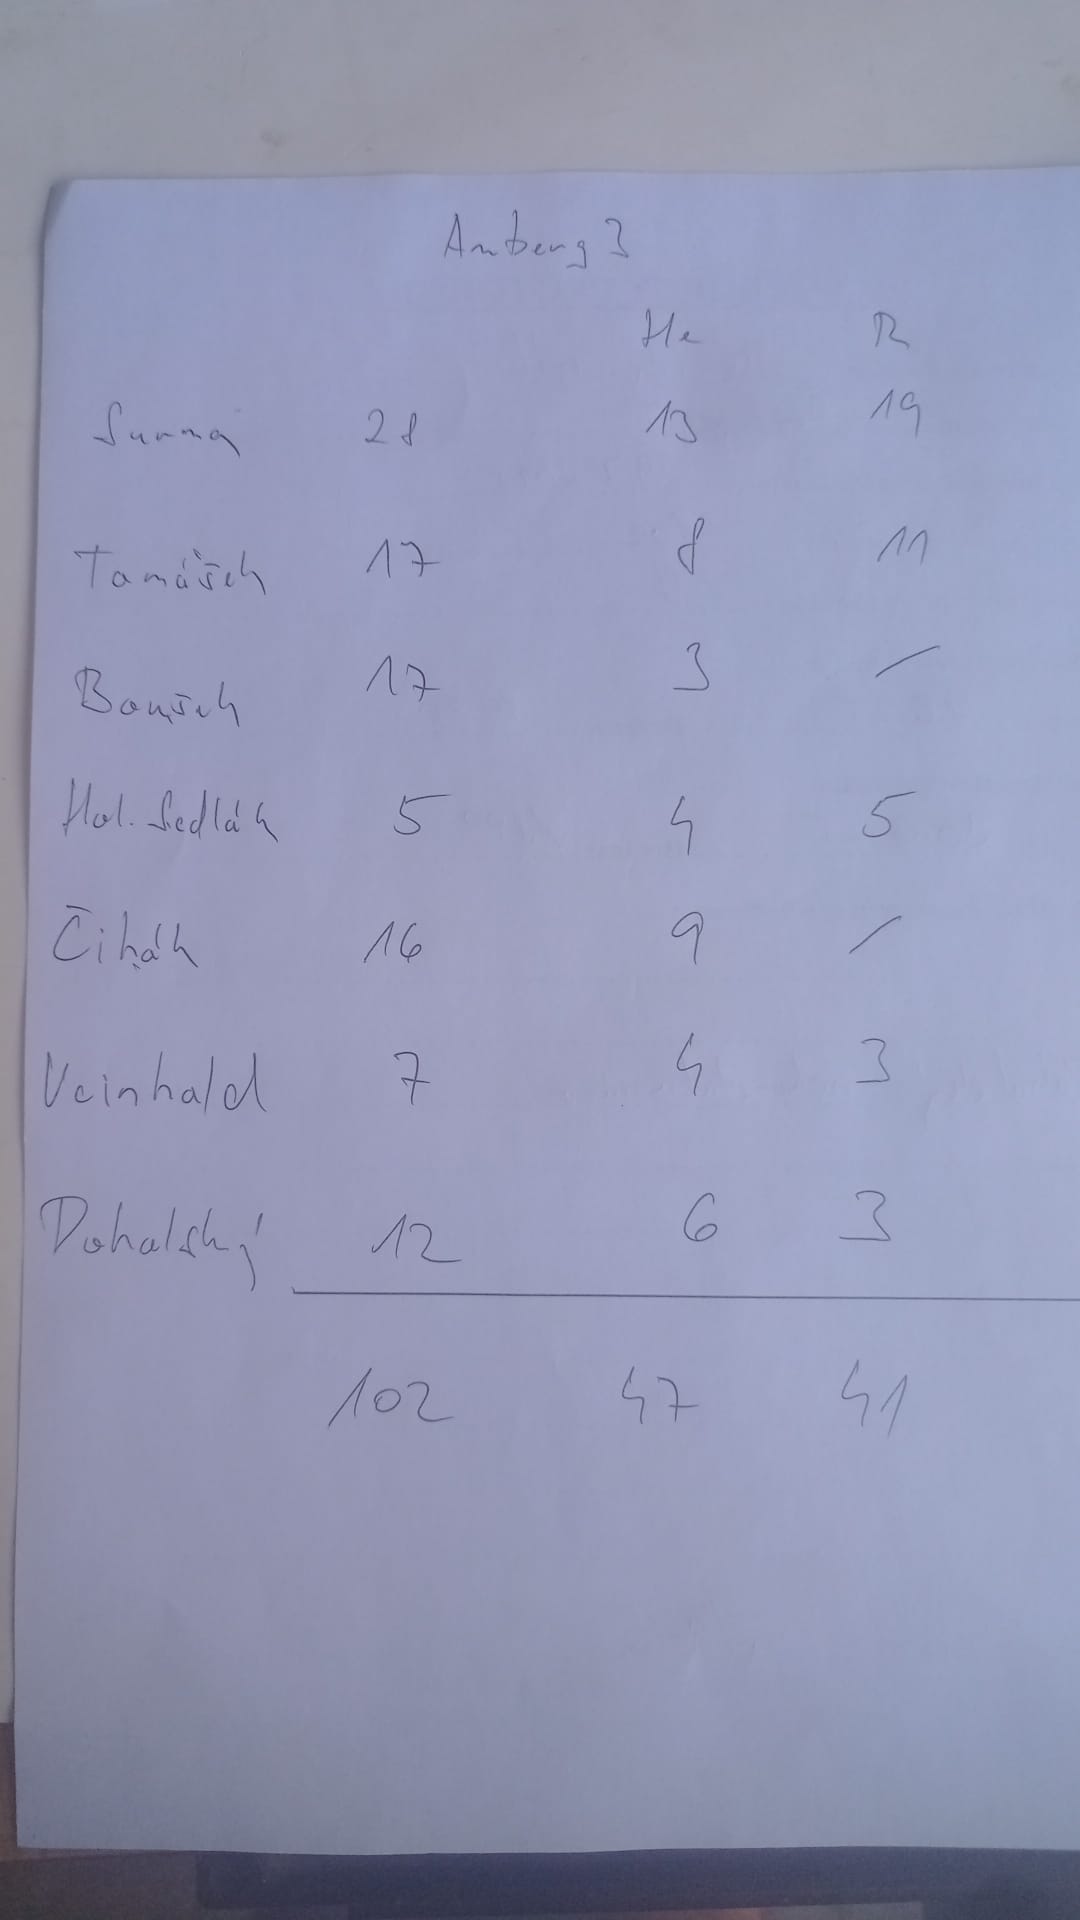 Amberg 3
He R
Sunna 28 13 19
Tamášek 17 8 11
17 3 –
Hol. Sedlák 5 4 5
Čihák 16 9 –
Veinhald 7 4 3
Dohalský 12 6 3
102 47 41